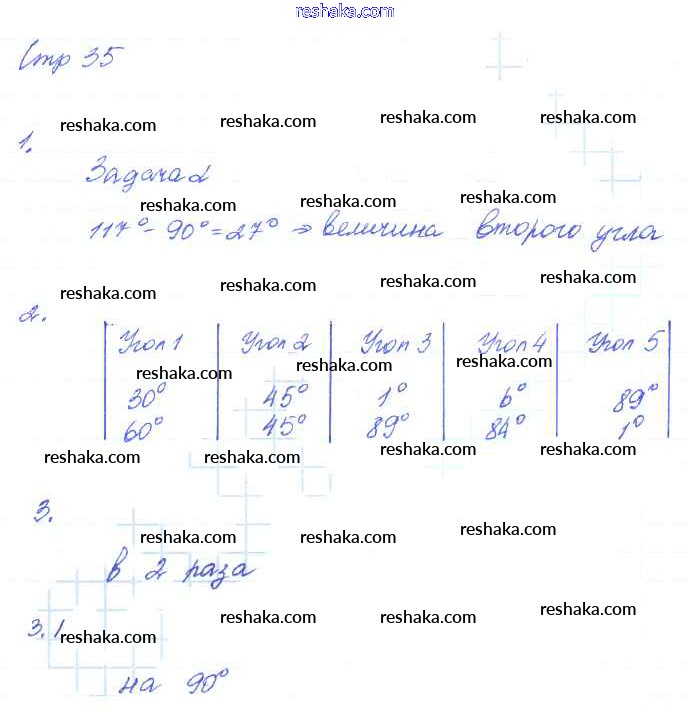 reshaka.com
Стр 35
reshaka.com reshaka.com reshaka.com reshaka.com
1.
Задача 2
reshaka.com reshaka.com reshaka.com
117° - 90° = 27° → величина второго угла
reshaka.com reshaka.com reshaka.com reshaka.com
2.
Угол 1 Угол 2 Угол 3 Угол 4 Угол 5
reshaka.com reshaka.com reshaka.com
30° 45° 1° 6° 89°
60° 45° 89° 84° 1°
reshaka.com reshaka.com reshaka.com reshaka.com
3.
reshaka.com reshaka.com reshaka.com
в 2 раза
3.1
reshaka.com reshaka.com reshaka.com reshaka.com
на 90°